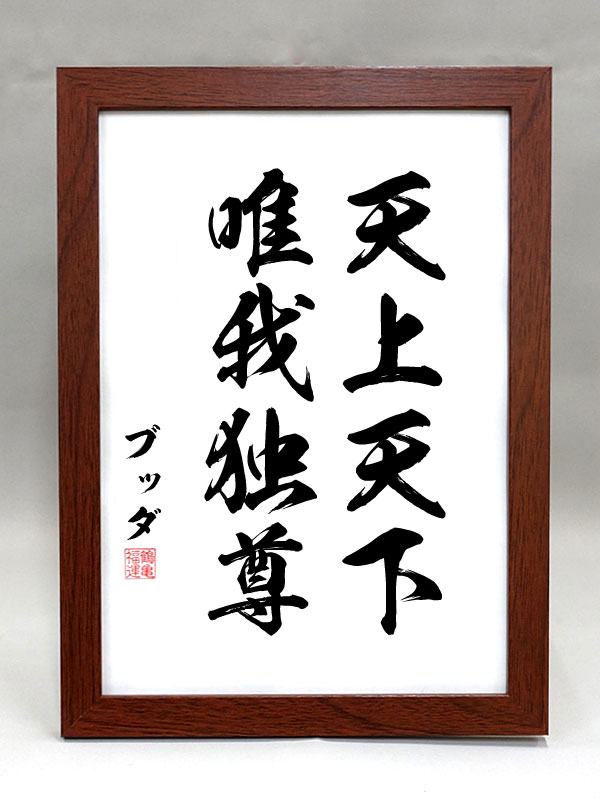 天上天下
唯我独尊
ブッダ
鶴亀
福運